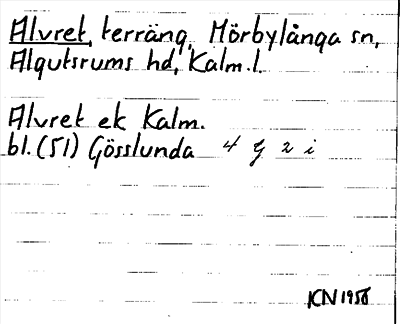 Alvret, terräng, Mörbylånga sn,
Algutsrums hd, Kalm.l.
Alvret ek Kalm.
bl. (51) Gösslunda 4 G 2 i
KN 1958